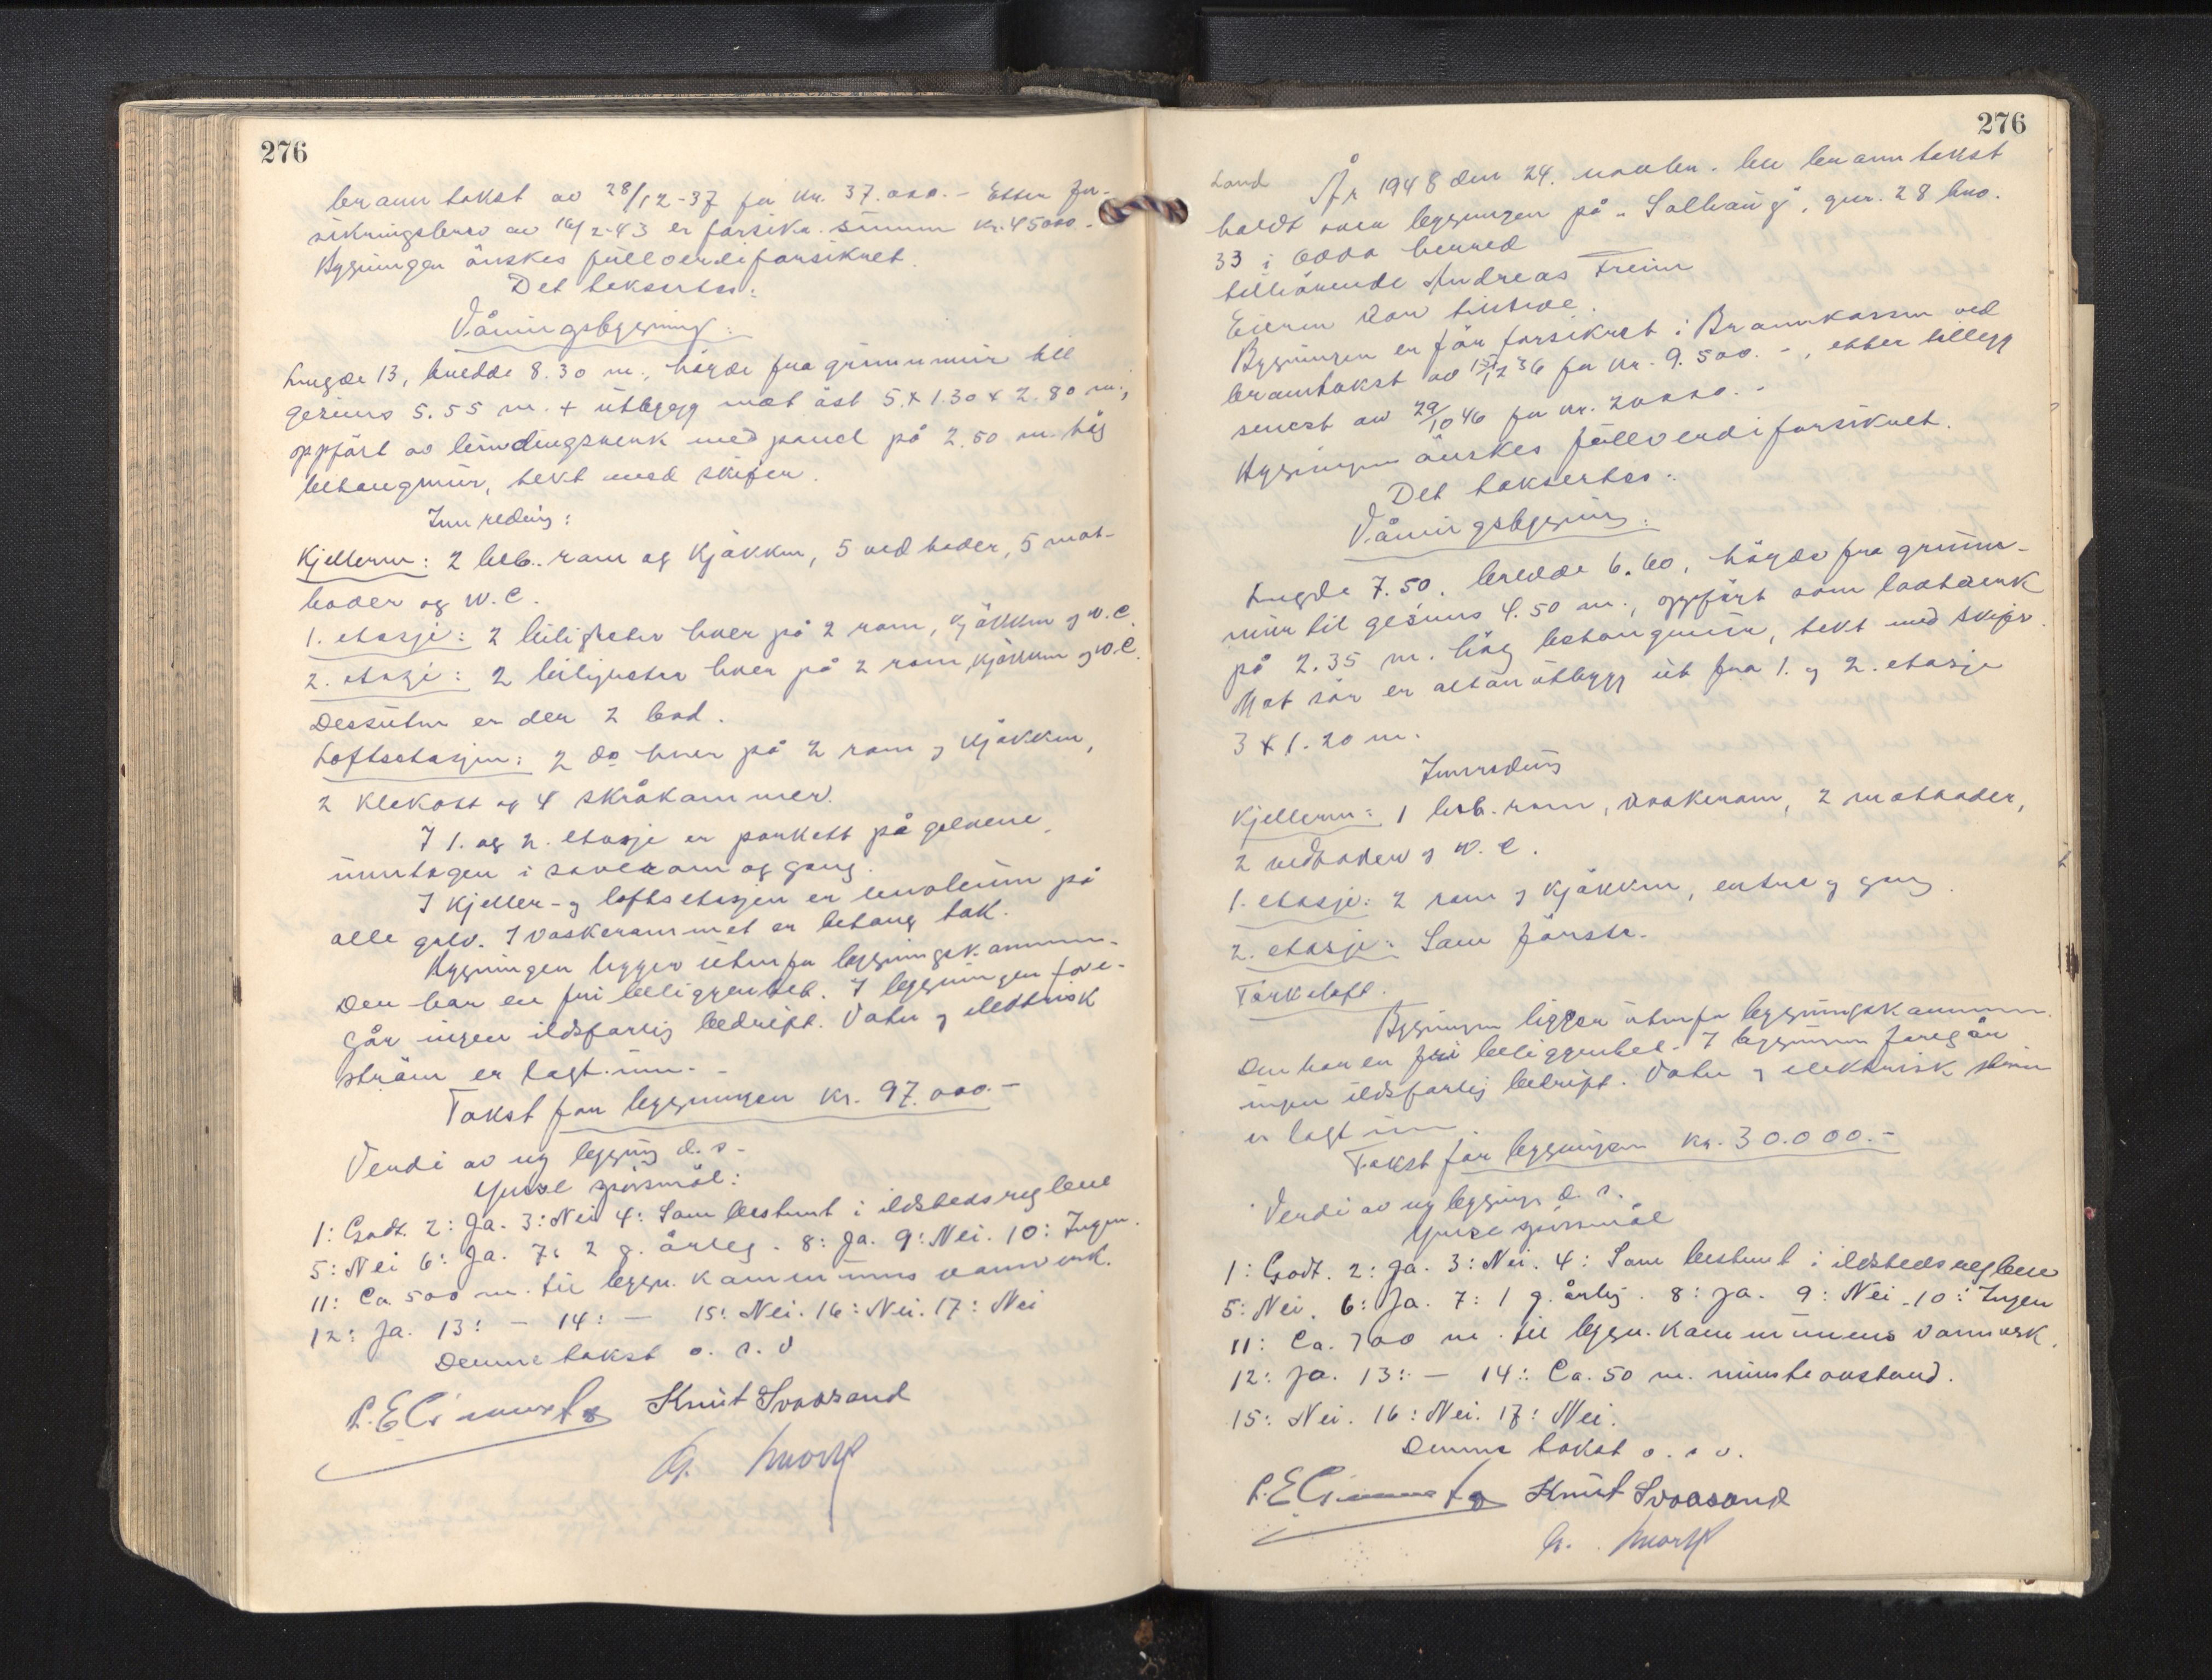 276
branntakst av 28/12-37 for kr. 37.000.- Etter for-
sikringsbevis av 16/2-43 er forsikr. summen kr. 45000.-
Bygningen ønskes fullverdiforsikret.
Det takseres:
Våningsbygning:
Lengde 13, bredde 8.30 m., høyde fra grunnmur til
gesims 5.55 m. + utbygg mot øst 5 x 1.30 x 2.80 m.,
oppført av bindingsverk med panel på 2.50 m. høg
betongmur, tekt med skifer.
Innreding:
Kjelleren: 2 beb. rom og kjøkken, 5 vedboder, 5 mat-
boder og W.C.
1. etasje: 2 leiligheter hver på 2 rom, kjøkken og W.C.
2. etasje: 2 leiligheter hver på 2 rom, kjøkken og W.C.
Dessuten er der 2 bad.
Loftsetasjen: 2 do hver på 2 rom og kjøkken,
2 klekott og 4 skråkammer.
I 1. og 2. etasje er parkett på golvene,
unntagen i soverom og gang.
I kjeller- og loftsetasjen er linoleum på
alle golv. I vaskerommet er betong tak.
Bygningen ligger utenfor bygningskommunen.
Den har en fri beliggenhet. I bygningen fore-
går ingen ildsfarlig bedrift. Vatn og elektrisk
strøm er lagt inn.-
Takst for bygningen kr. 97.000.-
Verdi av ny bygning d.s.-
Ymse spørsmål:
1: Godt. 2: Ja. 3: Nei 4: Som bestemt i ildstedsreglene
5: Nei 6: Ja. 7: 2 g. årleg. 8: Ja. 9: Nei. 10: Ingen.
11: Ca 500 m. til bygn. kommunens vannverk.
12: Ja. 13: - 14: - 15: Nei. 16: Nei. 17: Nei
Denne takst o. s. v
Knut Svaasand
276
Land År 1948 den 24. novbr. ble branntakst
holdt over bygningen på "Solhaug", gnr. 28 bno.
33 i Odda herred
tilhørende Andreas Freim
Eieren var tilstede.
Bygningen er før forsikret i Brannkassen ved
branntakst av 12 36 for kr. 9.500.-, etter tillegg
senest av 29/10 46 for kr. 20000.-
Bygningen ønskes fullverdiforsikret.
Det takseres:
Våningsbygning:
Lengde 7.50, bredde 6.60, høyde fra grunn-
mur til gesims 4.50 m., oppført som
på 2.35 m. høg betongmur, tekt med skifer.
Mot sør er altanutbygg ut fra 1. og 2. etasje
3 x 1.20 m.
Innreding
Kjelleren: 1 beb. rom, vaskerom, 2 matboder,
2 vedboder og W.C.
1. etasje: 2 rom og kjøkken, entre og gang.
2. etasje: Som første.
Tørkeloft.
Bygningen ligger utenfor bygningskommunen.
Den har en fri beliggenhet. I bygningen foregår
ingen ildsfarlig bedrift. Vatn og elektrisk strøm
er lagt inn.
Takst for bygningen kr. 30.000.-
Verdi av ny bygning d. s.
Ymse spørsmål
1: Godt. 2: Ja. 3: Nei. 4: Som bestemt i ildstedsreglene
5: Nei. 6: Ja. 7: 1 g. årlig. 8: Ja. 9: Nei. 10: Ingen
11: Ca. 700 m. til bygn. kommunens vannverk.
12: Ja. 13: - 14: Ca. 50 m. minste avstand.
15: Nei. 16: Nei. 17: Nei.
Denne takst o. s. v.
Knut Svaasand